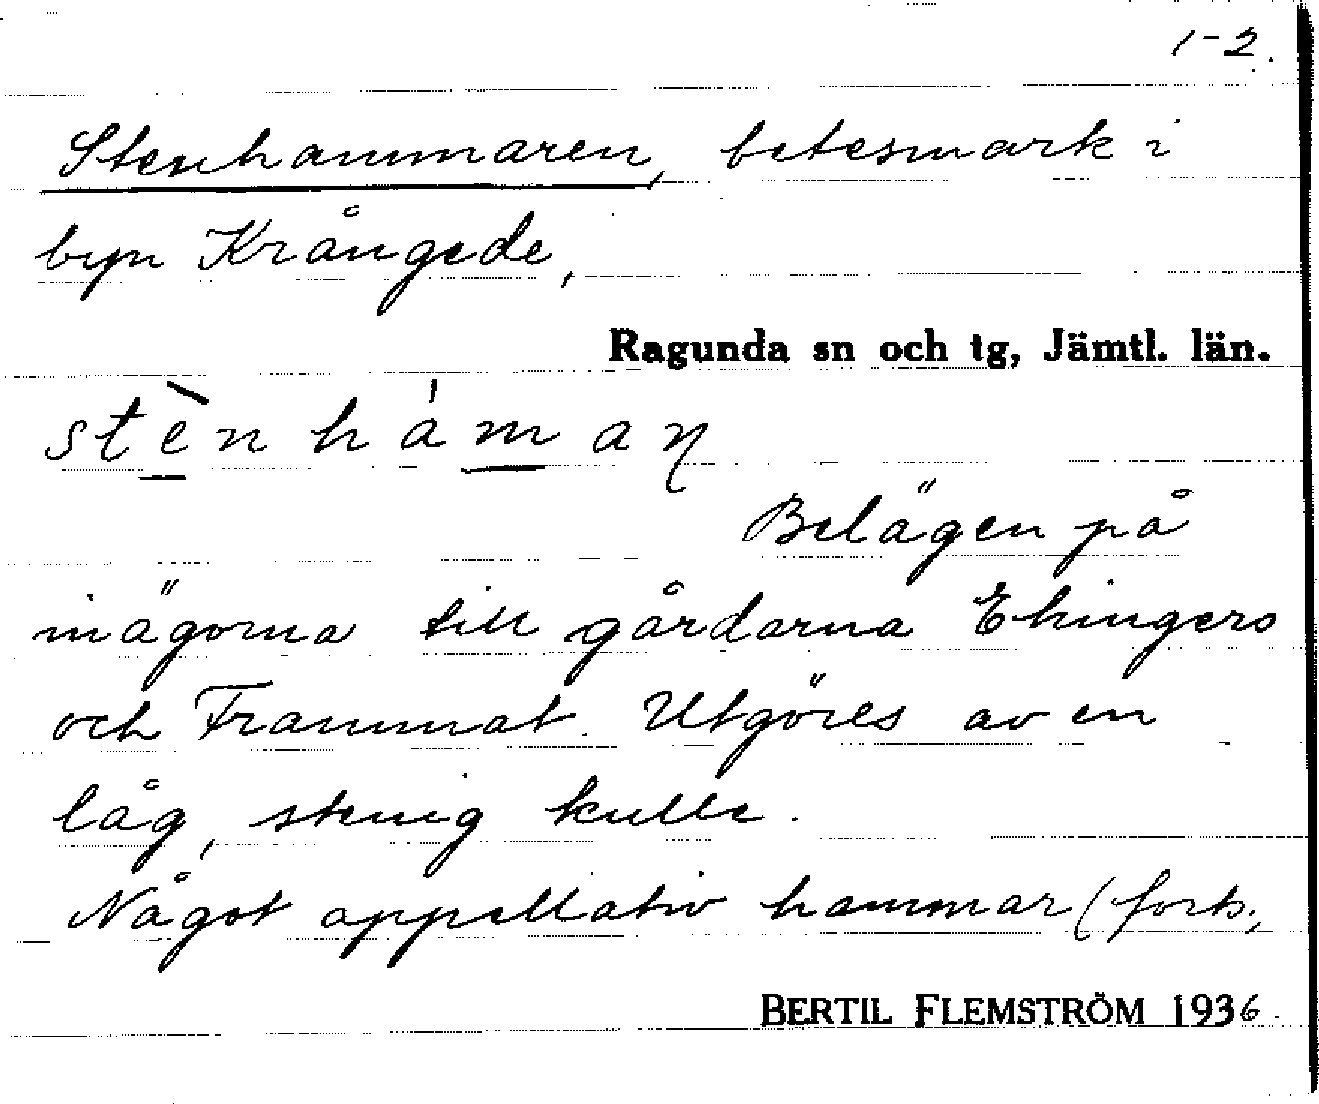 1-2.
Stenhammaren, betesmark i
byn Krångede,
Ragunda sn och tg, Jämtl. län.
stèn hám aɳ
Belägen på
inägorna till gårdarna Ehingers
och Frammat. Utgöres av en
låg, stenig kulle.
Något appellativ hammar (forts.,
BERTIL FLEMSTRÖM 1936.